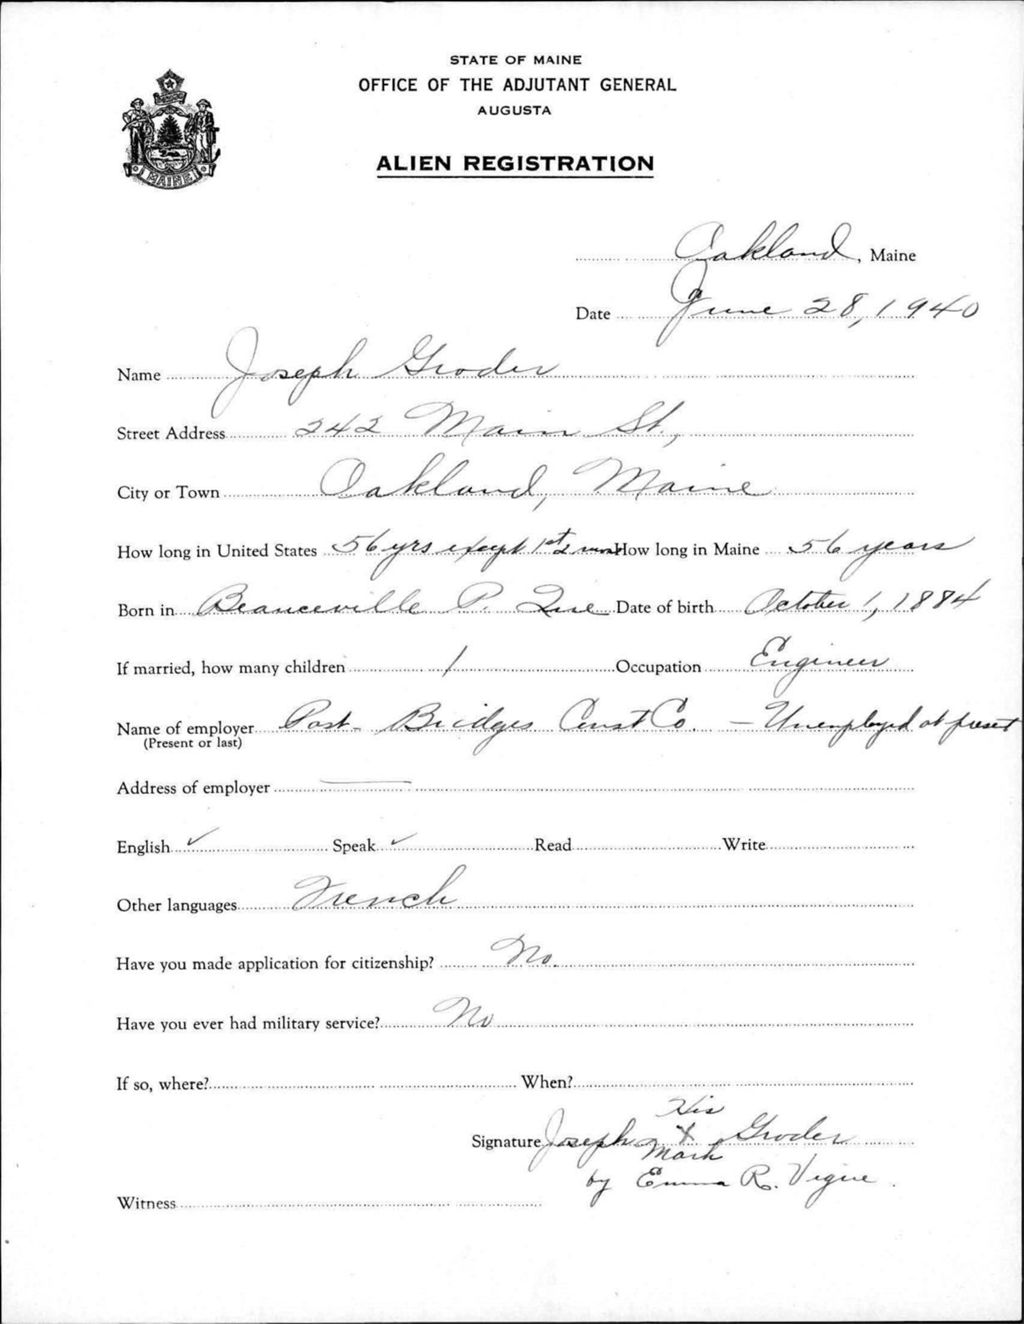 STATE OF MAINE
OFFICE OF THE ADJUTANT GENERAL
AUGUSTA
ALIEN REGISTRATION
MAINE
Oakland, Maine
Date June 28, 1940
Name Joseph Groder
Street Address 242 Main St.,
City or Town Oakland, Maine
How long in United States 56 yrs except 1st 2 mos How long in Maine 56 years
Born in Beauceville P. Que Date of birth October 1, 1884
If married, how many children 1 Occupation Engineer
Name of employer Past - Bridges Const Co. - Unemployed at present
(Present or last)
Address of employer
English ✓ Speak ✓ Read Write
Other languages French
Have you made application for citizenship? No.
Have you ever had military service? No
If so, where? When?
His
Signature Joseph X Groder
Mark
by Emma R. Vigue.
Witness